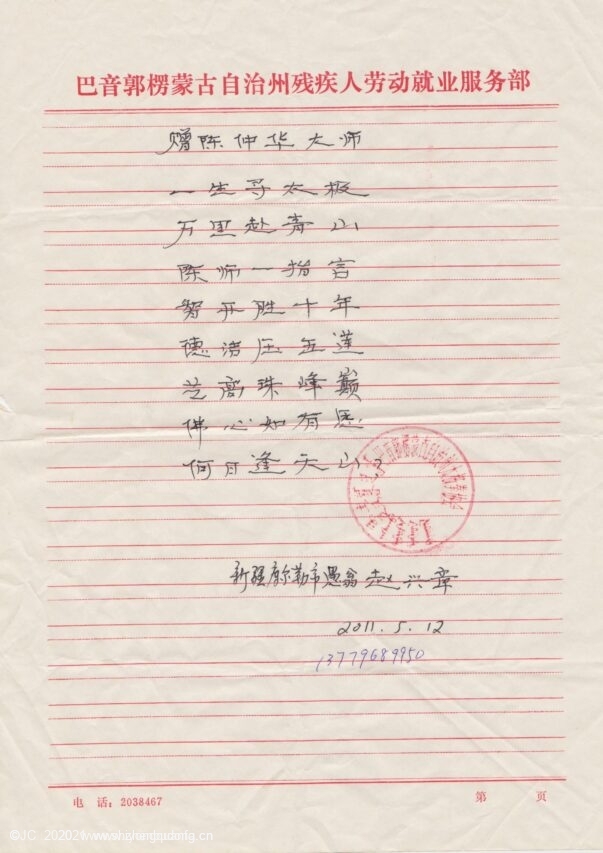 巴音郭楞蒙古自治州残疾人劳动就业服务部
赠陈仲华大师
一生寻太极
万里赴青山
陈师一指言
智开胜十年
德浩压玉莲
艺高珠峰巅
佛心如有愿
何日逢天山
新疆库尔勒市愚翁赵兴章
2011.5.12
13779689950
电 话：2038467
第 页